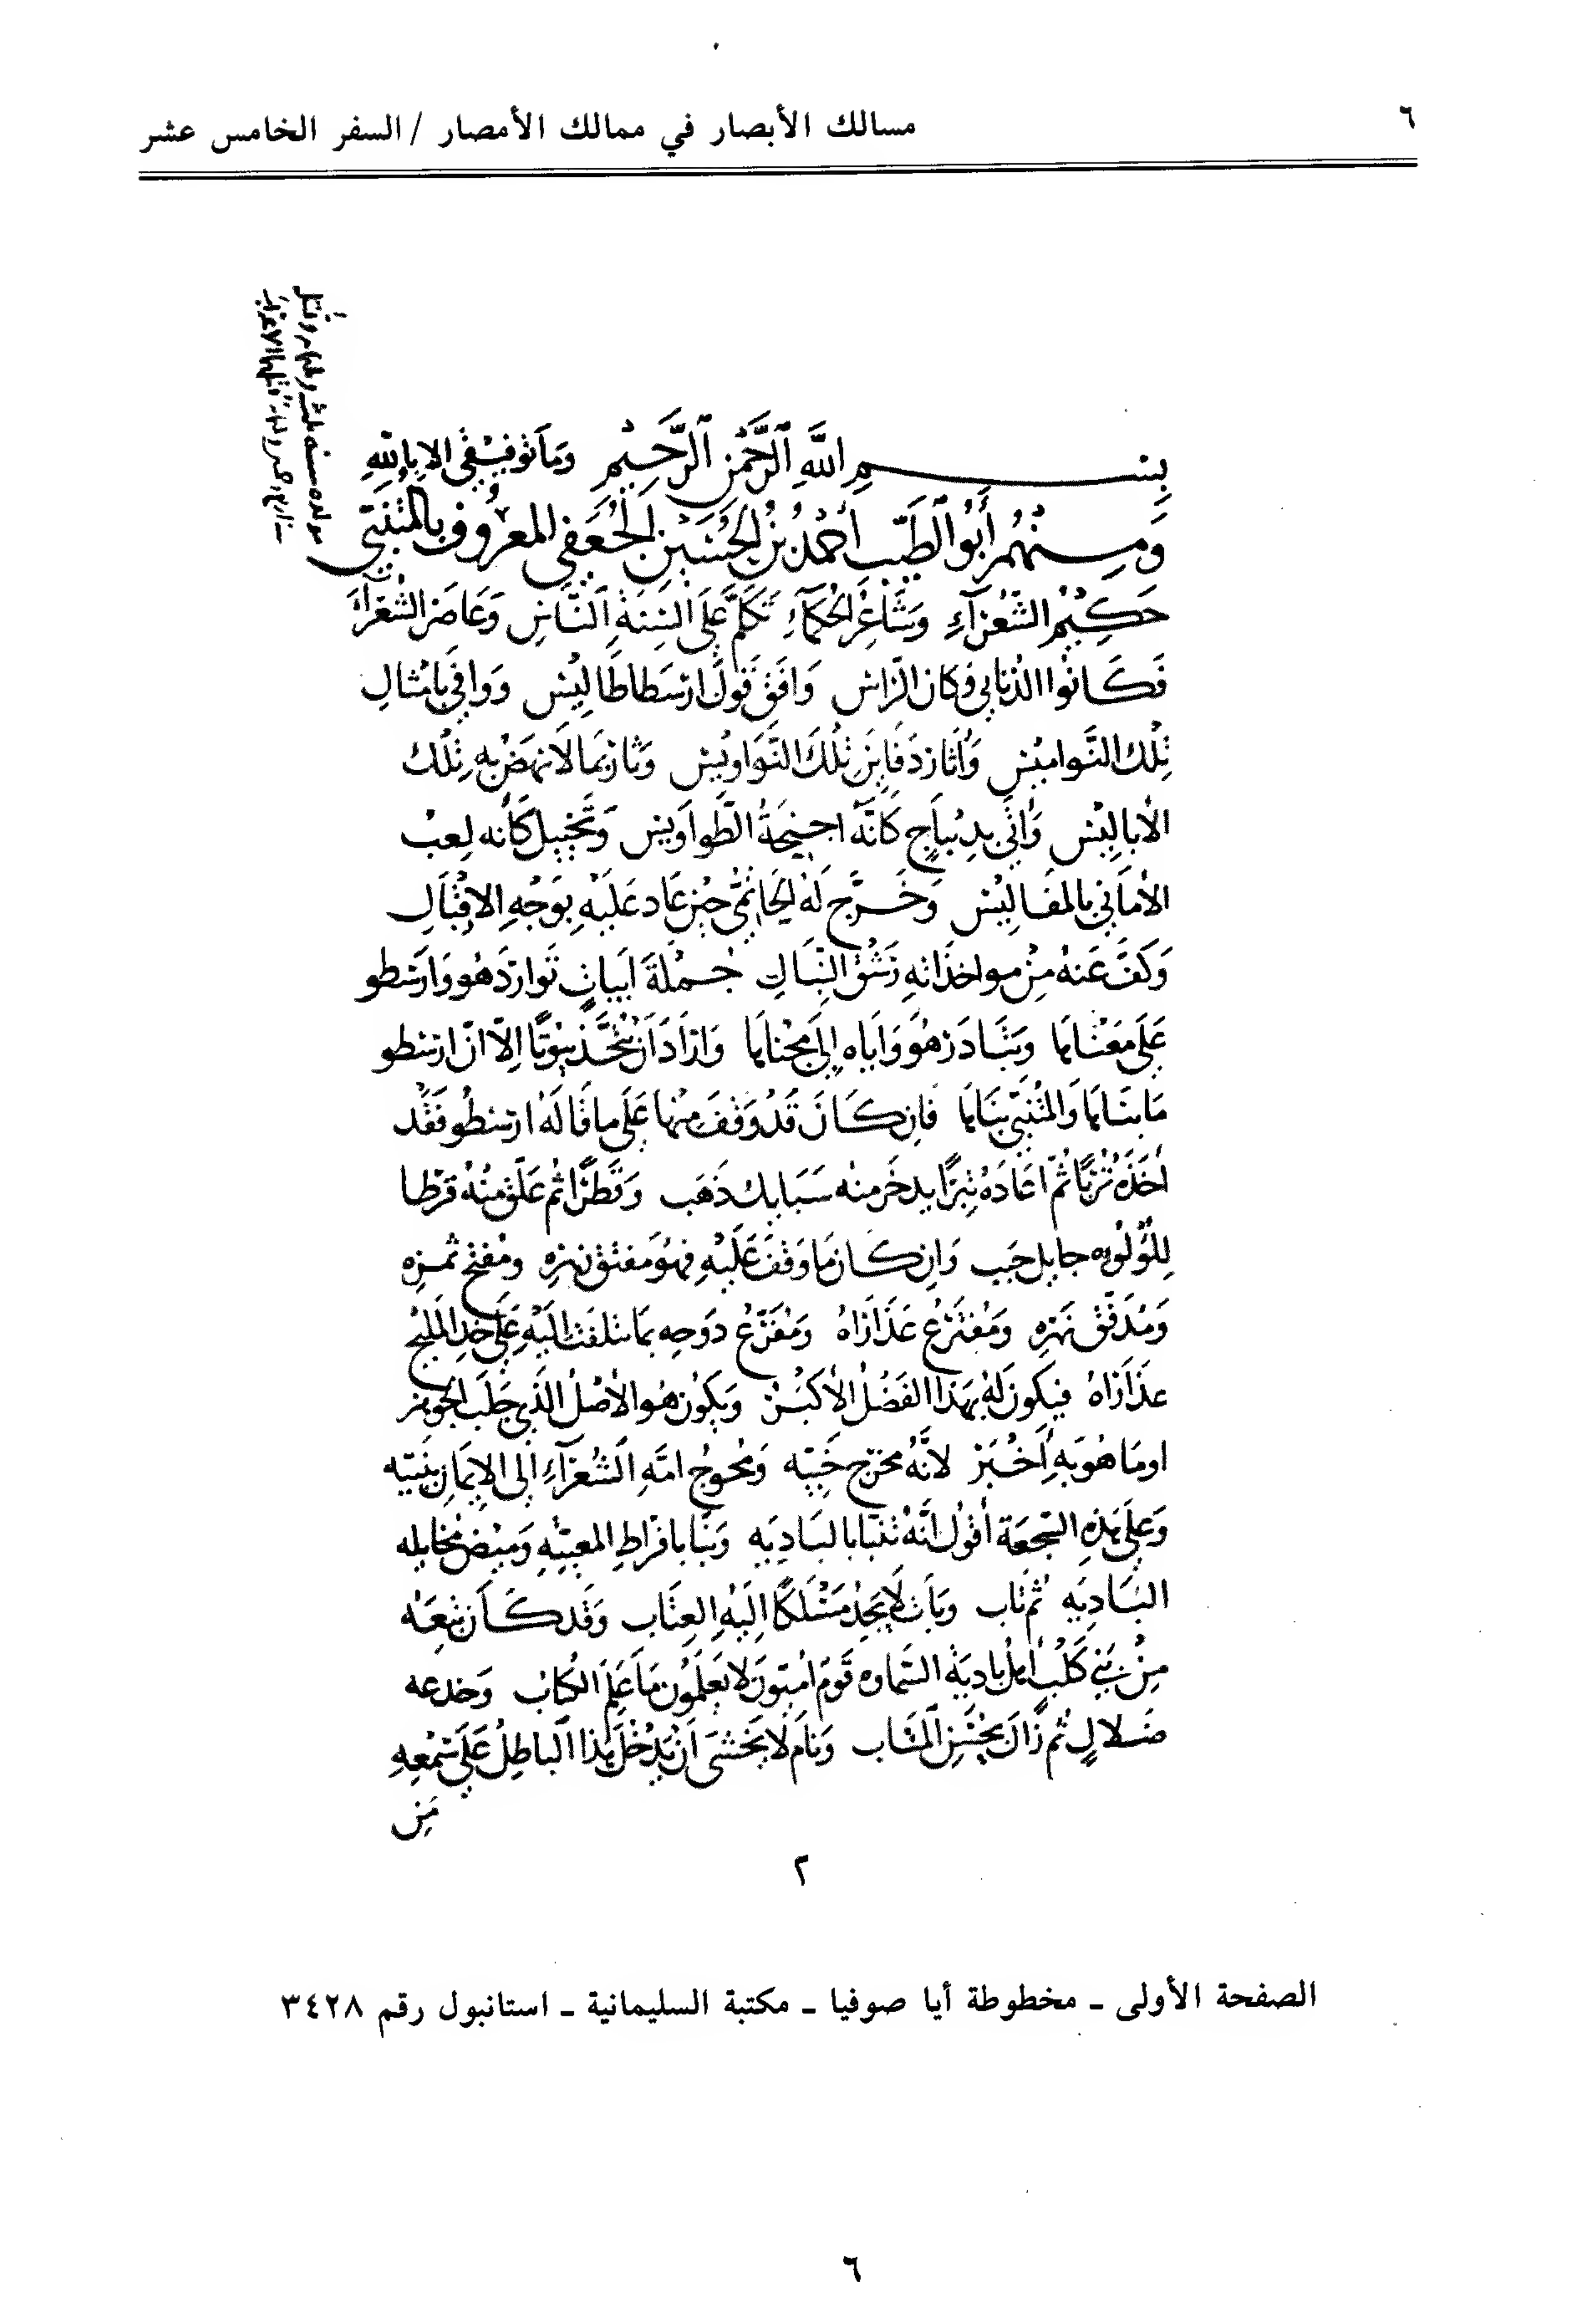 ٦
مسالك الأبصار في ممالك الأمصار / السفر الخامس عشر
مولده سنة ثلث وثلثمايه وقتل
بِسمِ اللَّهِ الرَّحْمَنِ الرَّحِيمِ وَمَا تَوفيْقي الا باللهِ
وَمِنهُم أَبُو الطَّيّب أَحمَدُ بْنُ الحُسَيْن الجُعَفي المعرُوف بالمُتنَبّي
حَكِيْمُ الشُّعَرَآءِ وَشَاعِرُ الحُكمآءِ تَكَلّمَ عَلَى السِنَةِ النَّاسِ وَعَاصَرَ الشُعَرَآءَ
فَكَانُوا الذُنابي وكان الرَّاس وَافَقَ قَولَ ارسَطاطاليْس وَوافي بامثالِ
تِلْك النَّواميْس وَأَثارَ دَفَاينَ تِلْكَ النَّوَاويْس وَثارَ بمَا لَا نهَضَ بِهِ تِلْك
الأباليْس وَأتَى بدِيْباجٍ كَانَّهُ اجنِحَةُ الطَّواوَيس وَتَخييل كَأنه لعِبُ
الأمَاني بالمفَاليْس وَخَرَّج لَهُ الحَاتمِيُّ حيْن عَاد عَلَيْهِ بوَجْهِ الاقْبَالِ
وَكَفَّ عَنهُ مِنْ مواخذاتهِ رَشْقَ النِّبَالِ جُمْلَةَ ابَياتٍ تَواردَ هُو وَارَسْطو
عَلَى مَعْنَاهَا وَتبَادَرَ هُوَ وَايَاه إلَى مَجْنَاهَا وَارَادَ انْ يتَّخذَ بيُوتًا الّا انّ ارسْطو
مَا بنَاهَا وَالمُتنَبّي بَنَاهَا فَاِن كَانَ قَدْ وَقَفَ منهَا عَلَى ما قَالَهُ ارسْطُو فقَدْ
أخذَهُ تُربًا ثُمَّ اعَادَهُ تِبرًا يدخَر منه سَبَايك ذهَب وَقَطرًا ثم عَلّق منْهُ قرْطا
لِلُّؤلُوه حايل حَبَب وَان كَان مَا وَقفَ عَلَيْهِ فهُوَ مفتق زهره ومُفتح ثمره
وَمُدَفّق نَهره وَمُفْتَرعُ عَذَارَاهُ وَمُفَرّعُ دَوحِه بمَا تلفت اليْهِ عَلَى خد المليْح
عذَارَاهُ فيكون لَهُ بهَذا الفَضلُ الأكبَرُ وَيكُون هُو الأصْلُ الَّذي جَلَب الجوهر
اومَا هُو بهِ أَخْبَرُ لأنَّهُ مخرج خَبِيّه وَمُحوجُ امَّةِ الشُعَرَآءِ إلى الايمَان بنَبيّه
وَعلَى هَذِهِ السّجعَة أقولُ انَّهُ تنبّا بالبَادِيَه وَنَبَا بافراطِ المعيَّهِ وَمَيضِ مخايله
البَاديَه ثُم تَاب وَبَات لَا يَجدُ مَسْلَكًا اليْه العِتَاب وَقَد كَانَ تَبِعَهُ
مِنْ بَني كَلْبٍ أهْل بَاديَةِ السَّماوه قَوم امّيّون لَا يَعلَمُون مَا عَلِمَ الكتابُ وَخدعه
ضَلالٍ ثم زَالَ بِحُسْنِ المَتَاب وَنَامَ لَا يَخشَى أنْ يدْخلَ هَذا البَاطِلُ عَلَى سَمْعِهِ
مَن
٢
الصفحة الأولى - مخطوطة أيا صوفيا - مكتبة السليمانية - استانبول رقم ٣٤٢٨
٦